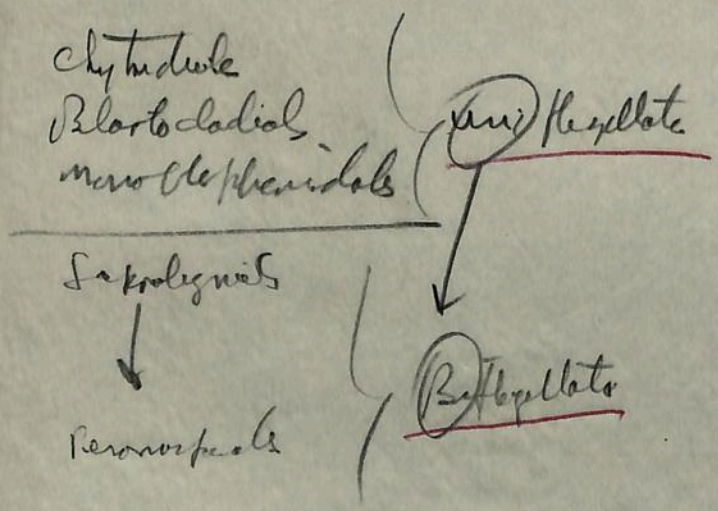 Chytridiale
Blastocladials
Monoblepharidals
Uniflagellata
Saprolegnials
Peronosporals
Biflagellata